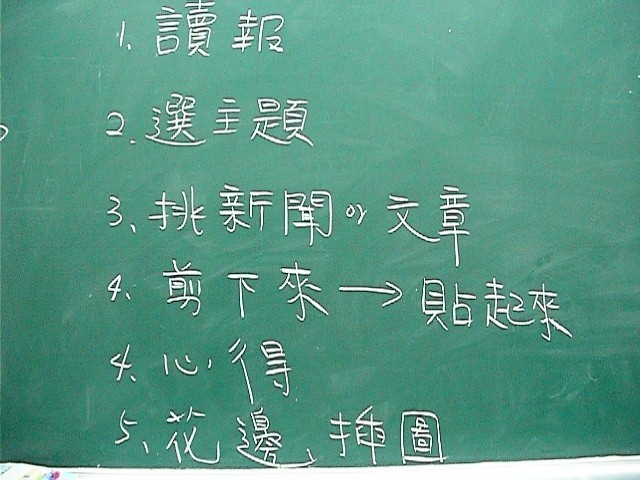 1. 讀報
2. 選主題
3、挑新聞 or 文章
4、剪下來→貼起來
4、心得
5、花邊、插圖